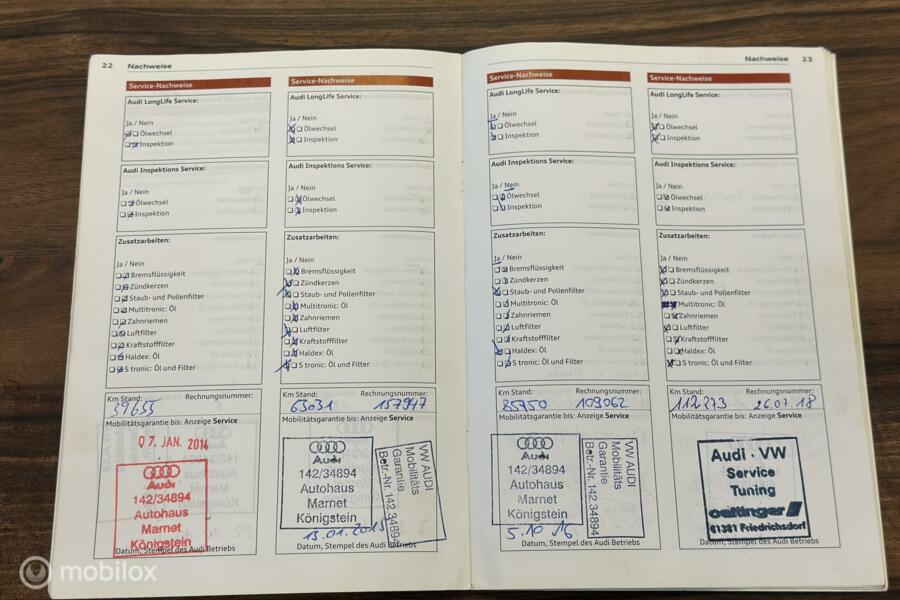 22 Nachweise
Service-Nachweise
Audi LongLife Service:
Ja / Nein
Ölwechsel
Inspektion
Audi Inspektions Service:
Ja / Nein
Ölwechsel
Inspektion
Zusatzarbeiten:
Ja / Nein
Bremsflüssigkeit
Zündkerzen
Staub- und Pollenfilter
Multitronic: Öl
Zahnriemen
Luftfilter
Kraftstofffilter
Haldex: Öl
S tronic: Öl und Filter
Km Stand: Rechnungsnummer:
39655
Mobilitätsgarantie bis: Anzeige Service
07. JAN. 2014
Audi
142/34894
Autohaus
Marnet
Königstein
Datum, Stempel des Audi Betriebs
Service-Nachweise
Audi LongLife Service:
Ja / Nein
Ölwechsel
Inspektion
Audi Inspektions Service:
Ja / Nein
Ölwechsel
Inspektion
Zusatzarbeiten:
Ja / Nein
Bremsflüssigkeit
Zündkerzen
Staub- und Pollenfilter
Multitronic: Öl
Zahnriemen
Luftfilter
Kraftstofffilter
Haldex: Öl
S tronic: Öl und Filter
Km Stand: Rechnungsnummer:
63031 157947
Mobilitätsgarantie bis: Anzeige Service
Audi
142/34894
Autohaus
Marnet
Königstein
13.01.2015
VW AUDI
Mobilitäts
Garantie
Betr.-Nr. 142 34894
Datum, Stempel des Audi Betriebs
Nachweise 23
Service-Nachweise
Audi LongLife Service:
Ja / Nein
Ölwechsel
Inspektion
Audi Inspektions Service:
Ja / Nein
Ölwechsel
Inspektion
Zusatzarbeiten:
Ja / Nein
Bremsflüssigkeit
Zündkerzen
Staub- und Pollenfilter
Multitronic: Öl
Zahnriemen
Luftfilter
Kraftstofffilter
Haldex: Öl
S tronic: Öl und Filter
Km Stand: Rechnungsnummer:
85750 109062
Mobilitätsgarantie bis: Anzeige Service
Audi
142/34894
Autohaus
Marnet
Königstein
5.10 16
VW AUDI
Mobilitäts
Garantie
Betr.-Nr. 142 34894
Datum, Stempel des Audi Betriebs
Service-Nachweise
Audi LongLife Service:
Ja / Nein
Ölwechsel
Inspektion
Audi Inspektions Service:
Ja / Nein
Ölwechsel
Inspektion
Zusatzarbeiten:
Ja / Nein
Bremsflüssigkeit
Zündkerzen
Staub- und Pollenfilter
Multitronic: Öl
Zahnriemen
Luftfilter
Kraftstofffilter
Haldex: Öl
S tronic: Öl und Filter
Km Stand: Rechnungsnummer:
112273 26.07.18
Mobilitätsgarantie bis: Anzeige Service
Audi · VW
Service
Tuning
oettinger
61381 Friedrichsdorf
Datum, Stempel des Audi Betriebs
mobilox